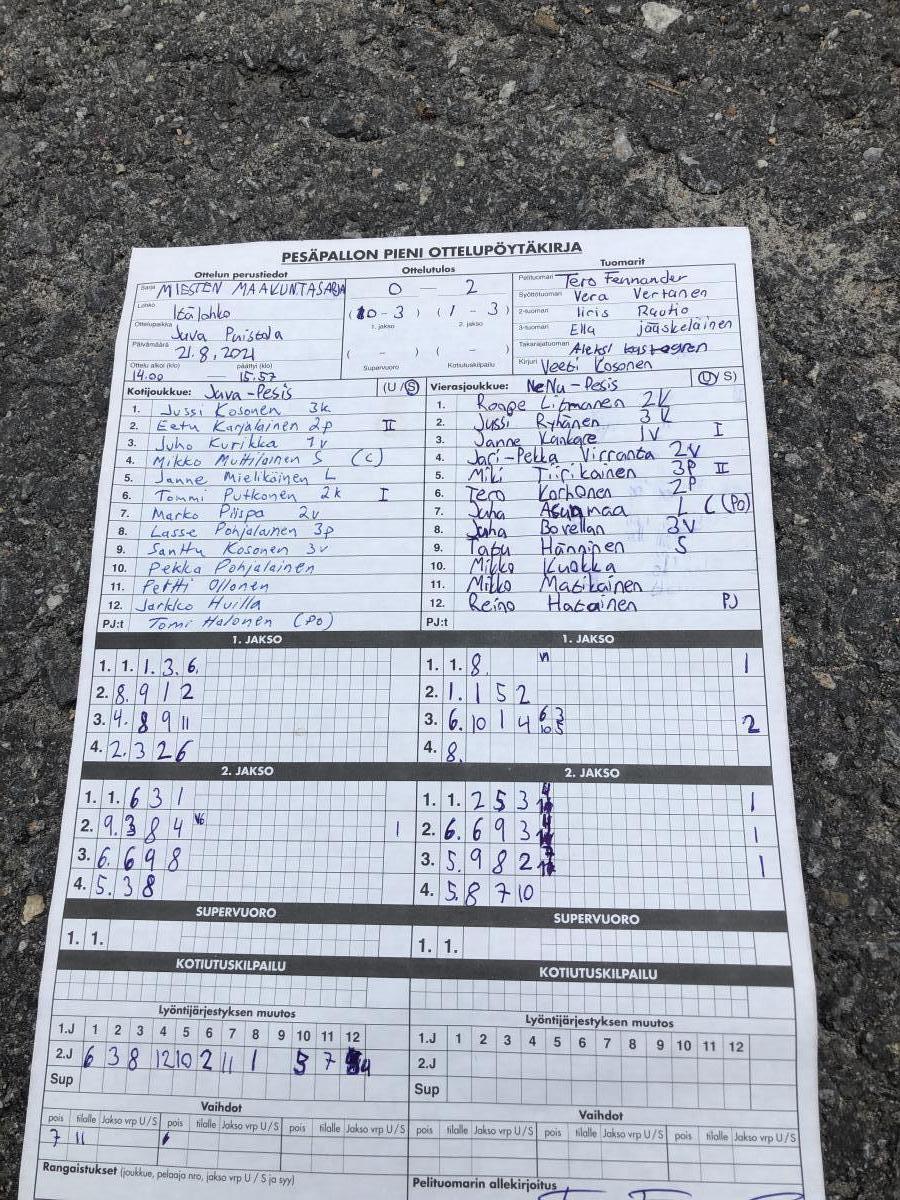 PESÄPALLON PIENI OTTELUPÖYTÄKIRJA
Ottelun perustiedot
Sarja MIESTEN MAAKUNTASARJA
Lohko Itälohko
Ottelupaikka Juva Puistola
Päivämäärä 21.8.2021
Ottelu alkoi (klo) päättyi (klo)
14.00 — 15.57
Ottelutulos
0 — 2
(0 - 3) (1 - 3)
1. jakso 2. jakso
( - ) ( - )
Supervuoro Kotiutuskilpailu
Tuomarit
Pelituomari Tero Fennander
Syöttötuomari Vera Vertanen
2-tuomari Iiris Rautio
3-tuomari Ella jääskeläinen
Takarajatuomari Aleksi
Kirjuri Veeti Kosonen
Kotijoukkue: Juva-Pesis (U/S)
1. Jussi Kosonen 3k
2. Eetu Karjalainen 2p II
3. Juho Kurikka 1v
4. Mikko Multilainen S (C)
5. Janne Mielikäinen L
6. Tommi Putkonen 2k I
7. Marko Piispa 2v
8. Lasse Pohjalainen 3p
9. Santtu Kosonen 3v
10. Pekka Pohjalainen
11. Pertti Ollonen
12. Jarkko Huilla
PJ:t Tomi Halonen (Po)
Vierasjoukkue: NeNu-Pesis (U/S)
1. Roope Litmanen 2V
2. Jussi Ryhänen 3K
3. Janne Kankare 1V I
4. Jari-Pekka Virranta 2V
5. Miki Tiirikainen 3P II
6. Tero Korhonen 2P
7. Juha Asunmaa L C (Po)
8. Juha Borellan 3V
9. Tapu Hänninen S
10. Mikko Kuokka
11. Mikko Matikainen
12. Reino Hatainen PJ
PJ:t
1. JAKSO
1. 1. 1. 3. 6.
2. 8. 9 1 2
3. 4. 8 9 11
4. 2. 3 2 6
1. JAKSO
1. 1. 8. 1
2. 1. 1 5 2
3. 6. 10 1 4 6 3 10 5 2
4. 8.
2. JAKSO
1. 1. 6 3 1
2. 9. 3 8 4 V6 1
3. 6. 6 9 8
4. 5. 3 8
2. JAKSO
1. 1. 2 5 3 1
2. 6. 6 9 3 1
3. 5. 9 8 2 1
4. 5. 8 7 10
SUPERVUORO
1. 1.
SUPERVUORO
1. 1.
KOTIUTUSKILPAILU
KOTIUTUSKILPAILU
Lyöntijärjestyksen muutos
1.J 1 2 3 4 5 6 7 8 9 10 11 12
2.J 6 3 8 12 10 2 11 1 5 7
Sup
Lyöntijärjestyksen muutos
1.J 1 2 3 4 5 6 7 8 9 10 11 12
2.J
Sup
Vaihdot
pois tilalle Jakso vrp U/S pois tilalle Jakso vrp U/S pois tilalle Jakso vrp U/S
7 11
Vaihdot
pois tilalle Jakso vrp U/S pois tilalle Jakso vrp U/S pois tilalle Jakso vrp U/S
Rangaistukset (joukkue, pelaaja nro, jakso vrp U / S ja syy)
Pelituomarin allekirjoitus